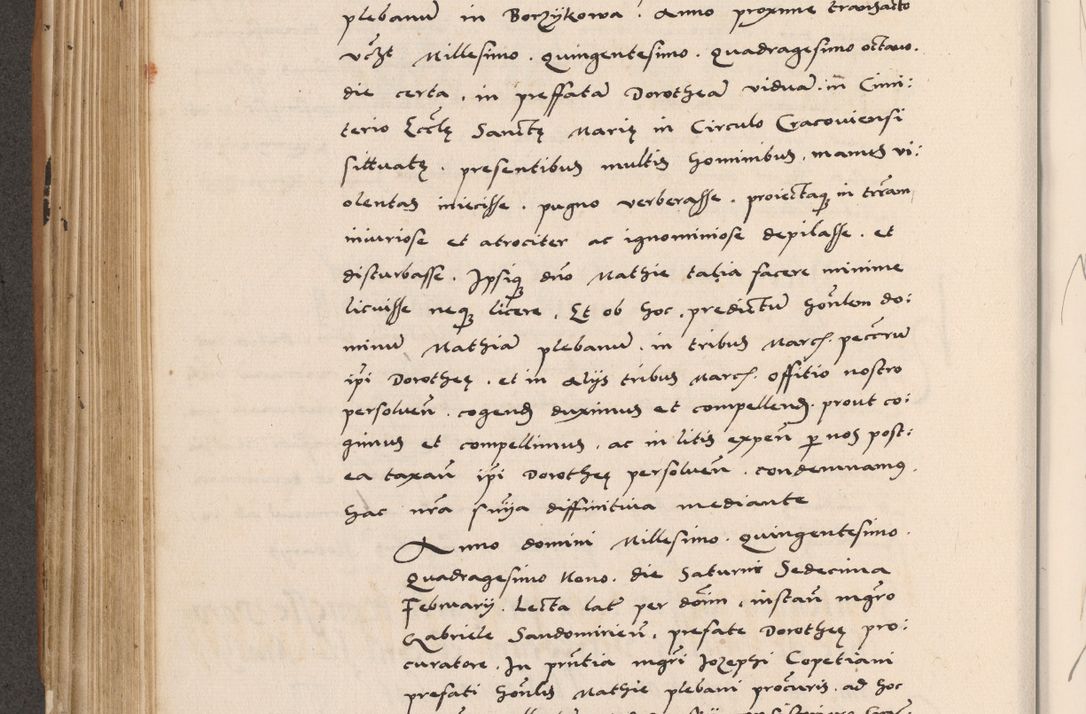 plebanu̅ in Borzykowa. Anno proxime transacto
vc̅zt Millesimo. Quingentesimo. Quadragesimo octavo.
die certa, in preffata̅ Dorothea̅ vidua̅. in Cimi:
terio Eccl̅ę Sanctę Marię in Circulo Cracoviensi
sittuatę. presentibus multis hominibus, manus vi:
olentas iniecisse. pugno verberasse. proiectaq; in terram
iniuriose et atrociter ac ignominiose depilasse. et
disturbasse. Ipsiq; dn̅o Mathie talia facere minime
licuisse neq; licere, Et ob hoc, predictu̅ hon̅len do:
minu̅ Mathia̅ plebanu̅. in tribus March. pecc̅ru̅
ip̅i Dorotheę. et in alijs tribus March. offitio nostro
persolven̅. cogend̅ duximus et compellend̅. prout co:
gimus et compellimus, ac in litis expen̅ p nos post:
ea taxan̅ ip̅i Dorotheę persolven̅. condemnamus,
hac nr̅a sn̅ia diffinitiva mediante
Anno domini Millesimo. Quingentesimo.
Quadragesimo Nono. die Saturni Sedecima
Februarij. Lecta lat̅ per do̅im, instan̅ mg̅ro
Gabriele Sandomirien̅, prefate Dorotheę pro:
curatore. In pn̅tia mg̅ri Jozephi Copetiani
prefati hon̅lis Mathie plebani procu̅ris. ad hoc